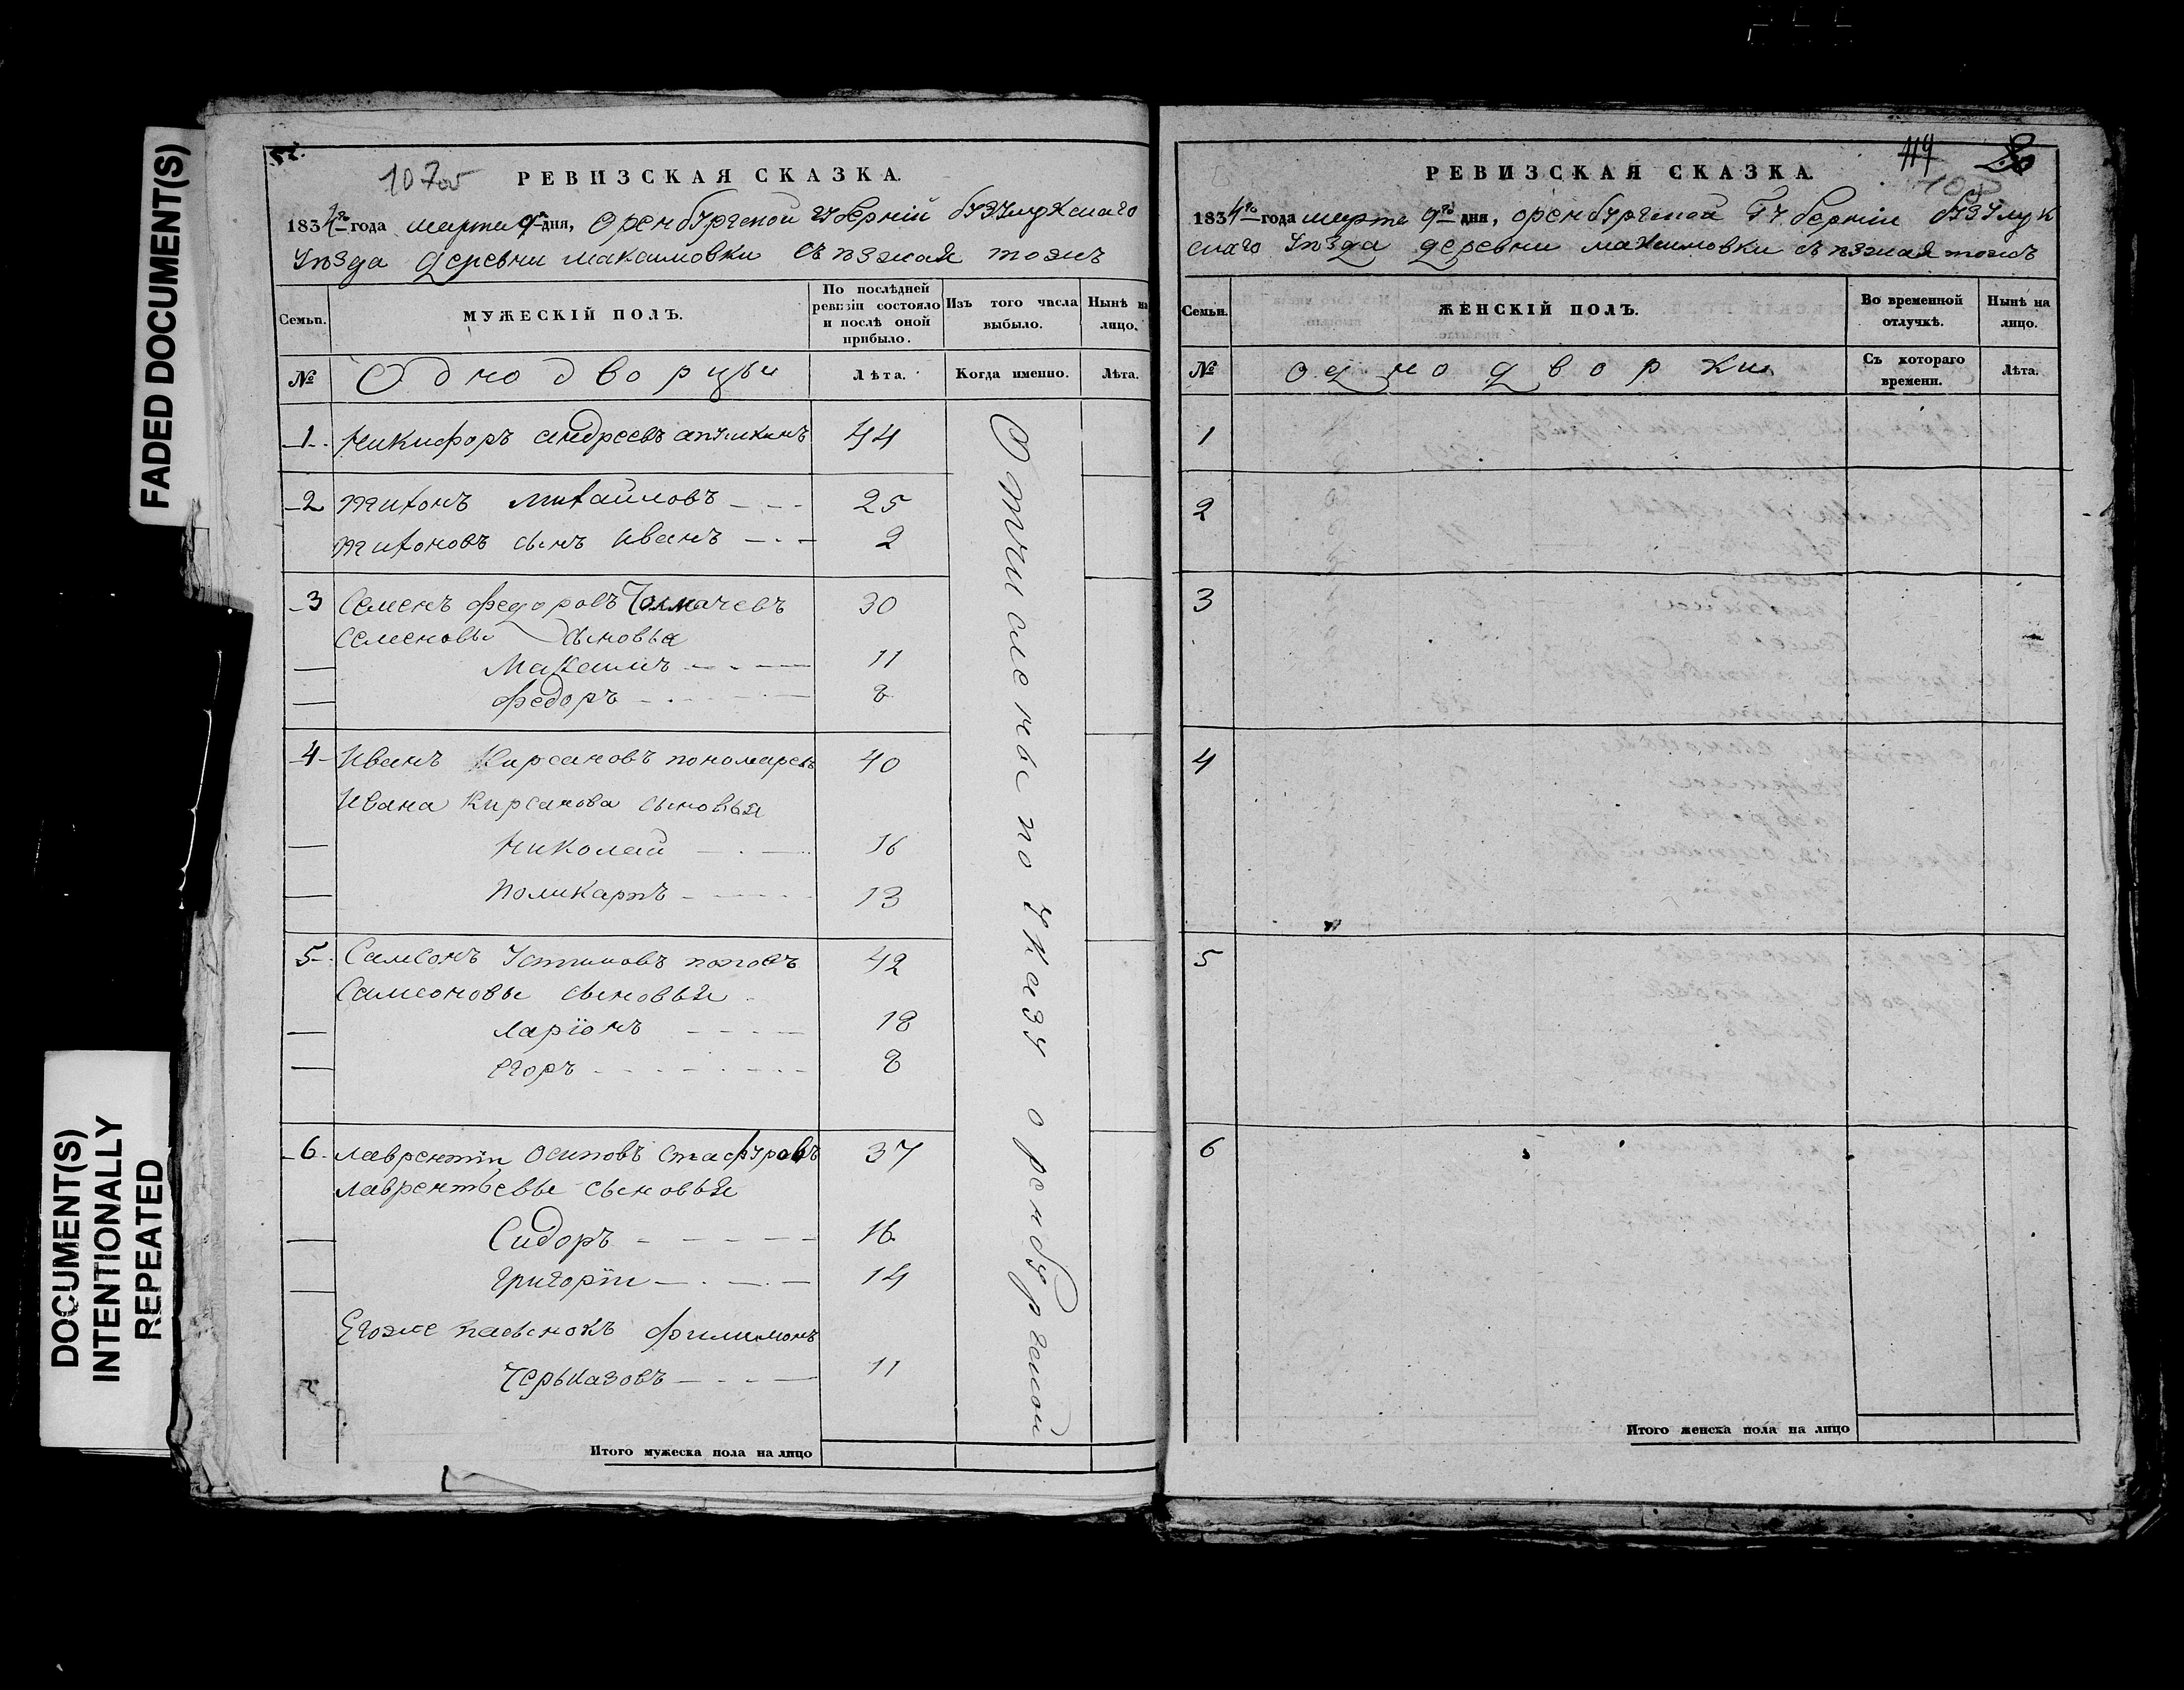 FADED DOCUMENT(S)
DOCUMENT(S)
INTENTIONALLY
REPEATED
107об
РЕВИЗСКАЯ СКАЗКА.
1834го года марта 9го дня, Оренбургской губерніи бузулукскаго
уѣзда деревни максимовки съѣзжая тожъ
Семьи.
МУЖЕСКІЙ ПОЛЪ.
По послѣдней ревизіи состояло и послѣ оной прибыло.
Изъ того числа выбыло.
Нынѣ на лицо.
№
Однодворцы
Лѣта.
Когда именно.
Лѣта.
1 Никифоръ андреевъ апушкинъ 44
2 тихонъ михайловъ 25
тихоновъ сынъ иванъ 2
3 Семенъ федоровъ Толмачевъ 30
Семеновы сыновья
Максимъ 11
федоръ 8
4 Иванъ Кирсановъ пономаревъ 40
Ивана Кирсанова сыновья
Николай 16
Поликарпъ 13
5 Самсонъ Устиновъ поповъ 42
Самсоновы сыновья
Ларіонъ 18
Егоръ 8
6 лаврентіи Осиповъ 37
лаврентьевы сыновья
Сидоръ 16
григоріи 14
Егоже пасынокъ филимонъ
Черказовъ 11
Отчислены по указу оренбургской
Итого мужеска пола на лицо
119
РЕВИЗСКАЯ СКАЗКА.
1834го года марта 9го дня, оренбургской Губерніи бузулук
скаго уѣзда деревни максимовки съѣзжая тожъ
Семьи.
ЖЕНСКІЙ ПОЛЪ.
Во временной отлучкѣ.
Нынѣ на лицо.
№
однодворки
Съ котораго времени.
Лѣта.
1
2
3
4
5
6
Итого женска пола на лицо